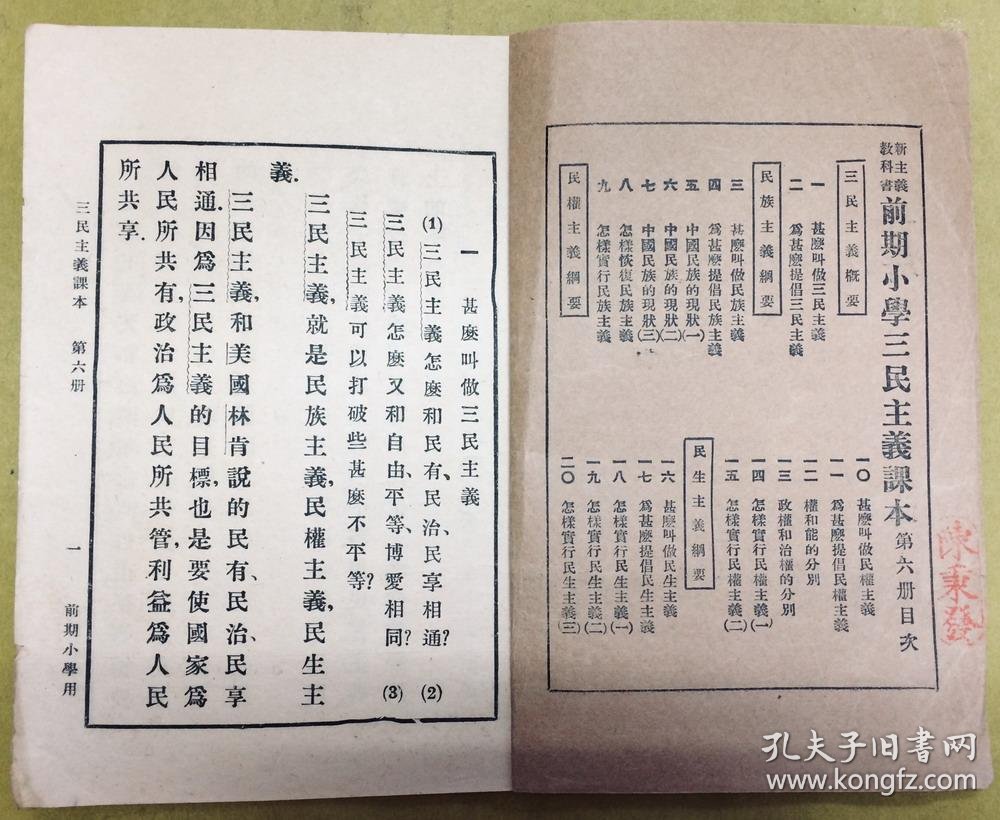 新主義
教科書
前期小學三民主義課本 第六册目次
三民主義概要
一 甚麽叫做三民主義
二 爲甚麽提倡三民主義
民族主義綱要
三 甚麽叫做民族主義
四 爲甚麽提倡民族主義
五 中國民族的現狀(一)
六 中國民族的現狀(二)
七 中國民族的現狀(三)
八 怎樣恢復民族主義
九 怎樣實行民族主義
民權主義綱要
一〇 甚麽叫做民權主義
一一 爲甚麽提倡民權主義
一二 權和能的分別
一三 政權和治權的分別
一四 怎樣實行民權主義(一)
一五 怎樣實行民權主義(二)
民生主義綱要
一六 甚麽叫做民生主義
一七 爲甚麽提倡民生主義
一八 怎樣實行民生主義(一)
一九 怎樣實行民生主義(二)
二〇 怎樣實行民生主義(三)
陳秉發
一 甚麽叫做三民主義
(1)三民主義怎麽和民有、民治、民享相通? (2)
三民主義怎麽又和自由、平等、博愛相同? (3)
三民主義可以打破些甚麽不平等?
三民主義,就是民族主義,民權主義,民生主
義.
三民主義,和美國林肯說的民有、民治、民享
相通.因爲三民主義的目標,也是要使國家爲
人民所共有,政治爲人民所共管,利益爲人民
所共享.
三民主義課本 第六册 一 前期小學用
孔夫子旧書网
www.kongfz.com